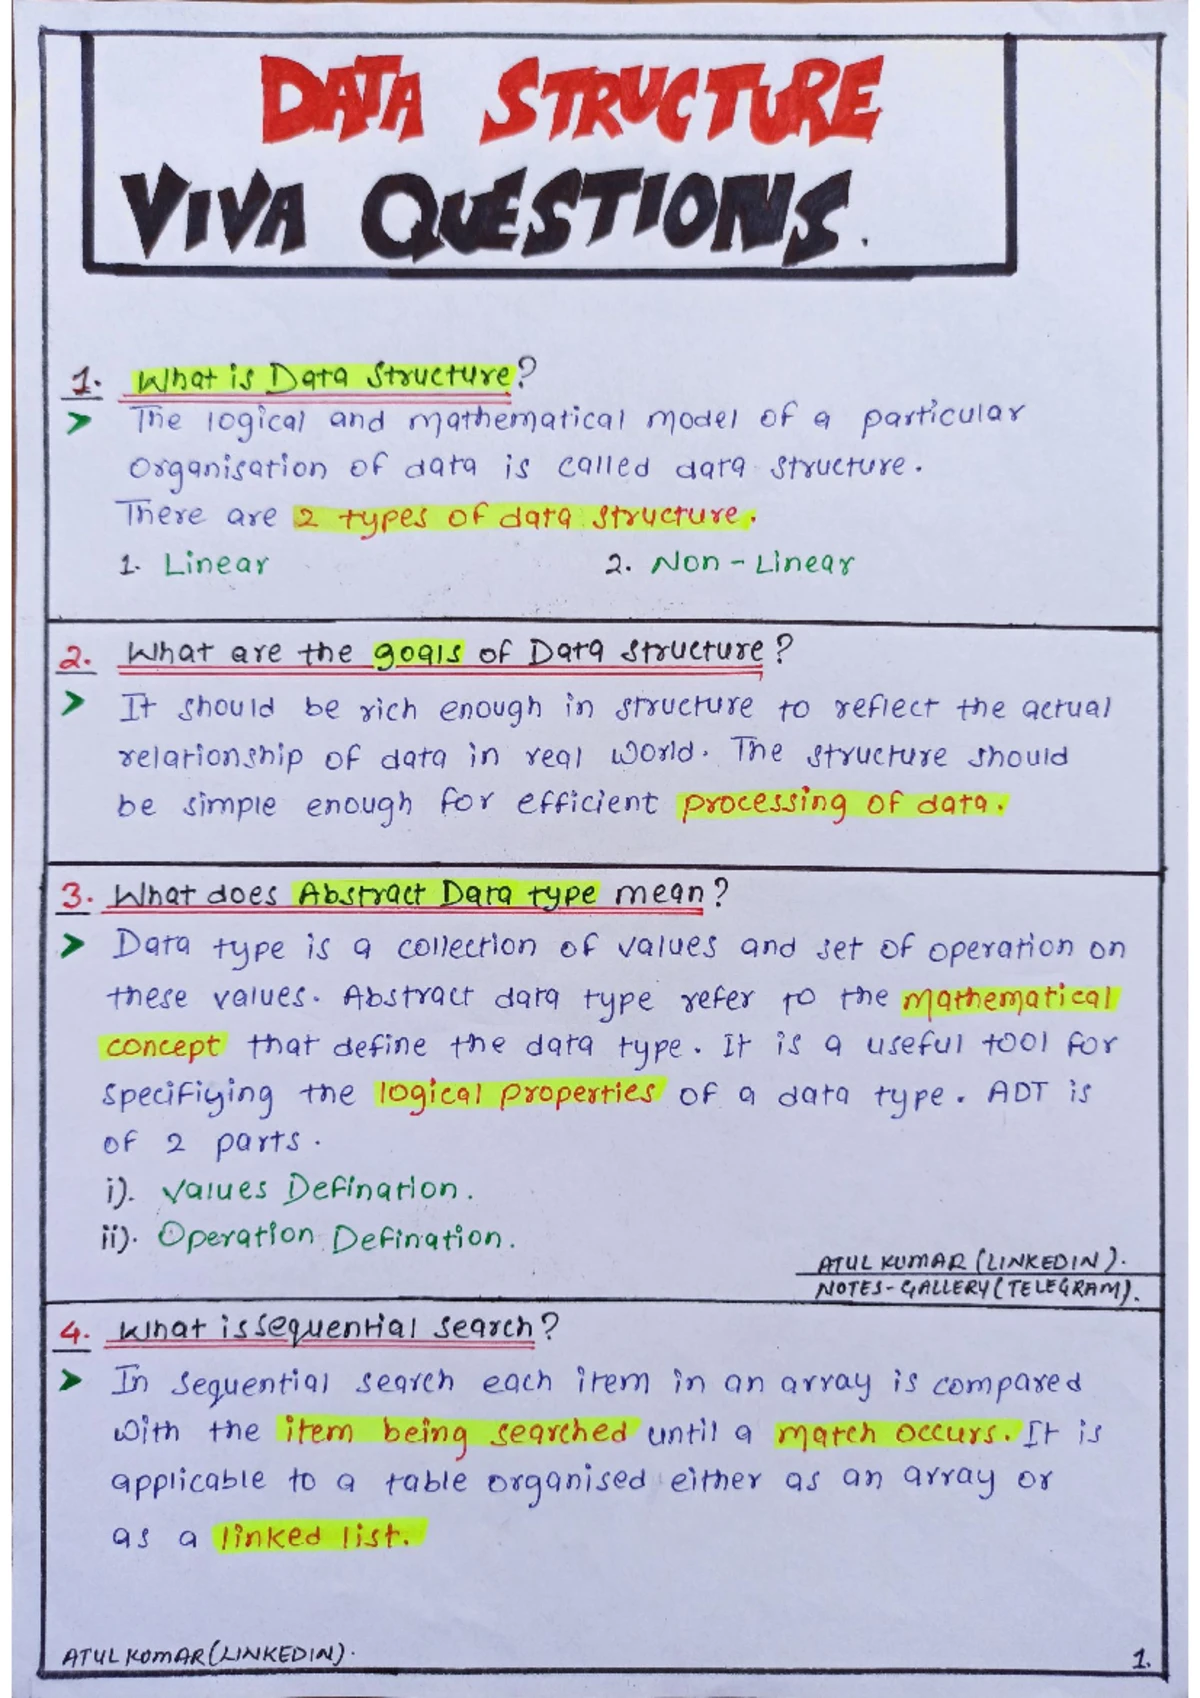 DATA STRUCTURE
VIVA QUESTIONS.
1. What is Data Structure?
> The logical and mathematical model of a particular
organisation of data is called data structure.
There are 2 types of data structure.
1. Linear 2. Non-Linear
2. What are the goals of Data Structure?
> It should be rich enough in structure to reflect the actual
relationship of data in real world. The structure should
be simple enough for efficient processing of data.
3. What does Abstract Data type mean?
> Data type is a collection of values and set of operation on
these values. Abstract data type refer to the mathematical
concept that define the data type. It is a useful tool for
specifiying the logical properties of a data type. ADT is
of 2 parts.
i). Values Defination.
ii). Operation Defination.
ATUL KUMAR (LINKEDIN).
NOTES-GALLERY (TELEGRAM).
4. What is sequential search?
> In sequential search each item in an array is compared
with the item being searched until a match occurs. It is
applicable to a table organised either as an array or
as a linked list.
ATUL KUMAR (LINKEDIN).
1.